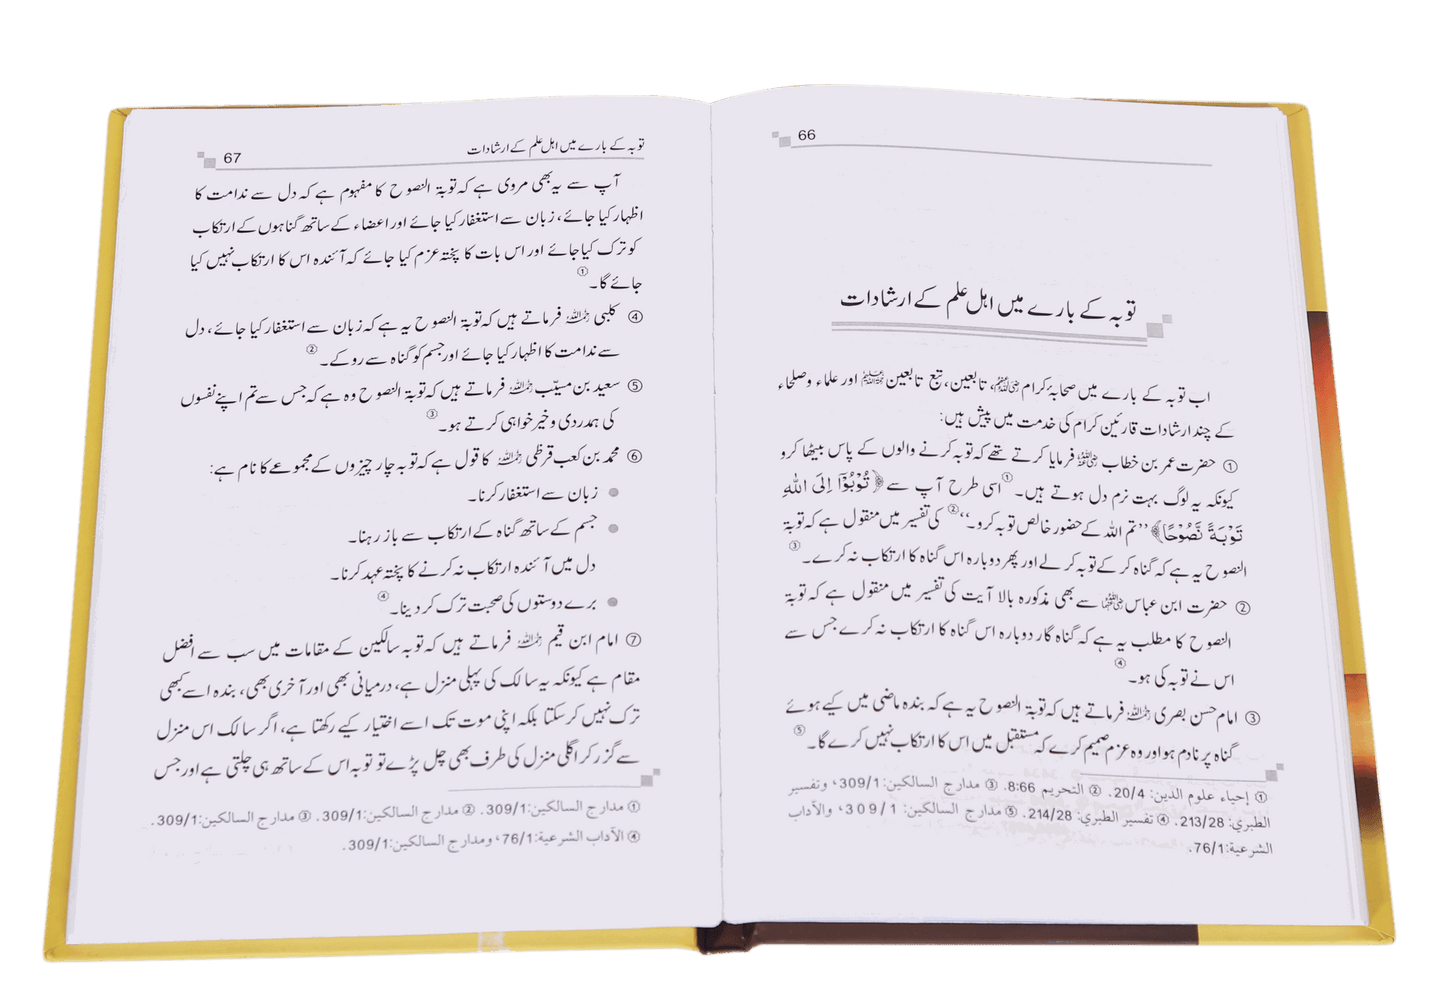 66
توبہ کے بارے میں اہل علم کے ارشادات
اب توبہ کے بارے میں صحابۂ کرام رضی اللہ عنہم، تابعین، تبع تابعین رحمہم اللہ اور علماء وصلحاء
کے چند ارشادات قارئین کرام کی خدمت میں پیش ہیں:
① حضرت عمر بن خطاب رضی اللہ عنہ فرمایا کرتے تھے کہ توبہ کرنے والوں کے پاس بیٹھا کرو
کیونکہ یہ لوگ بہت نرم دل ہوتے ہیں۔① اسی طرح آپ سے ﴿تُوْبُوْٓا اِلَى اللّٰهِ
تَوْبَةً نَّصُوْحًا﴾ ’’تم اللہ کے حضور خالص توبہ کرو۔‘‘② کی تفسیر میں منقول ہے کہ توبۃ
النصوح یہ ہے کہ گناہ کر کے توبہ کر لے اور پھر دوبارہ اس گناہ کا ارتکاب نہ کرے۔③
② حضرت ابن عباس رضی اللہ عنہما سے بھی مذکورہ بالا آیت کی تفسیر میں منقول ہے کہ توبۃ
النصوح کا مطلب یہ ہے کہ گناہ گار دوبارہ اس گناہ کا ارتکاب نہ کرے جس سے
اس نے توبہ کی ہو۔④
③ امام حسن بصری رحمہ اللہ فرماتے ہیں کہ توبۃ النصوح یہ ہے کہ بندہ ماضی میں کیے ہوئے
گناہ پر نادم ہو اور وہ عزم صمیم کرے کہ مستقبل میں اس کا ارتکاب نہیں کرے گا۔⑤
① إحياء علوم الدين: 20/4. ② التحريم 8:66. ③ مدارج السالكين: 309/1، وتفسير
الطبري: 213/28. ④ تفسير الطبري: 214/28. ⑤ مدارج السالكين: 309/1، والآداب
الشرعية: 76/1.
توبہ کے بارے میں اہل علم کے ارشادات 67
آپ سے یہ بھی مروی ہے کہ توبۃ النصوح کا مفہوم ہے کہ دل سے ندامت کا
اظہار کیا جائے، زبان سے استغفار کیا جائے اور اعضاء کے ساتھ گناہوں کے ارتکاب
کو ترک کیا جائے اور اس بات کا پختہ عزم کیا جائے کہ آئندہ اس کا ارتکاب نہیں کیا
جائے گا۔①
④ کلبی رحمہ اللہ فرماتے ہیں کہ توبۃ النصوح یہ ہے کہ زبان سے استغفار کیا جائے، دل
سے ندامت کا اظہار کیا جائے اور جسم کو گناہ سے روکے۔②
⑤ سعید بن مسیّب رحمہ اللہ فرماتے ہیں کہ توبۃ النصوح وہ ہے کہ جس سے تم اپنے نفسوں
کی ہمدردی و خیر خواہی کرتے ہو۔③
⑥ محمد بن کعب قرظی رحمہ اللہ کا قول ہے کہ توبہ چار چیزوں کے مجموعے کا نام ہے:
● زبان سے استغفار کرنا۔
● جسم کے ساتھ گناہ کے ارتکاب سے باز رہنا۔
دل میں آئندہ ارتکاب نہ کرنے کا پختہ عہد کرنا۔
● برے دوستوں کی صحبت ترک کر دینا۔④
⑦ امام ابن قیم رحمہ اللہ فرماتے ہیں کہ توبہ سالکین کے مقامات میں سب سے افضل
مقام ہے کیونکہ یہ سالک کی پہلی منزل ہے، درمیانی بھی اور آخری بھی، بندہ اسے کبھی
ترک نہیں کر سکتا بلکہ اپنی موت تک اسے اختیار کیے رکھتا ہے، اگر سالک اس منزل
سے گزر کر اگلی منزل کی طرف بھی چل پڑے تو توبہ اس کے ساتھ ہی چلتی ہے اور جس
① مدارج السالكين: 309/1. ② مدارج السالكين: 309/1. ③ مدارج السالكين: 309/1.
④ الآداب الشرعية: 76/1، ومدارج السالكين: 309/1.